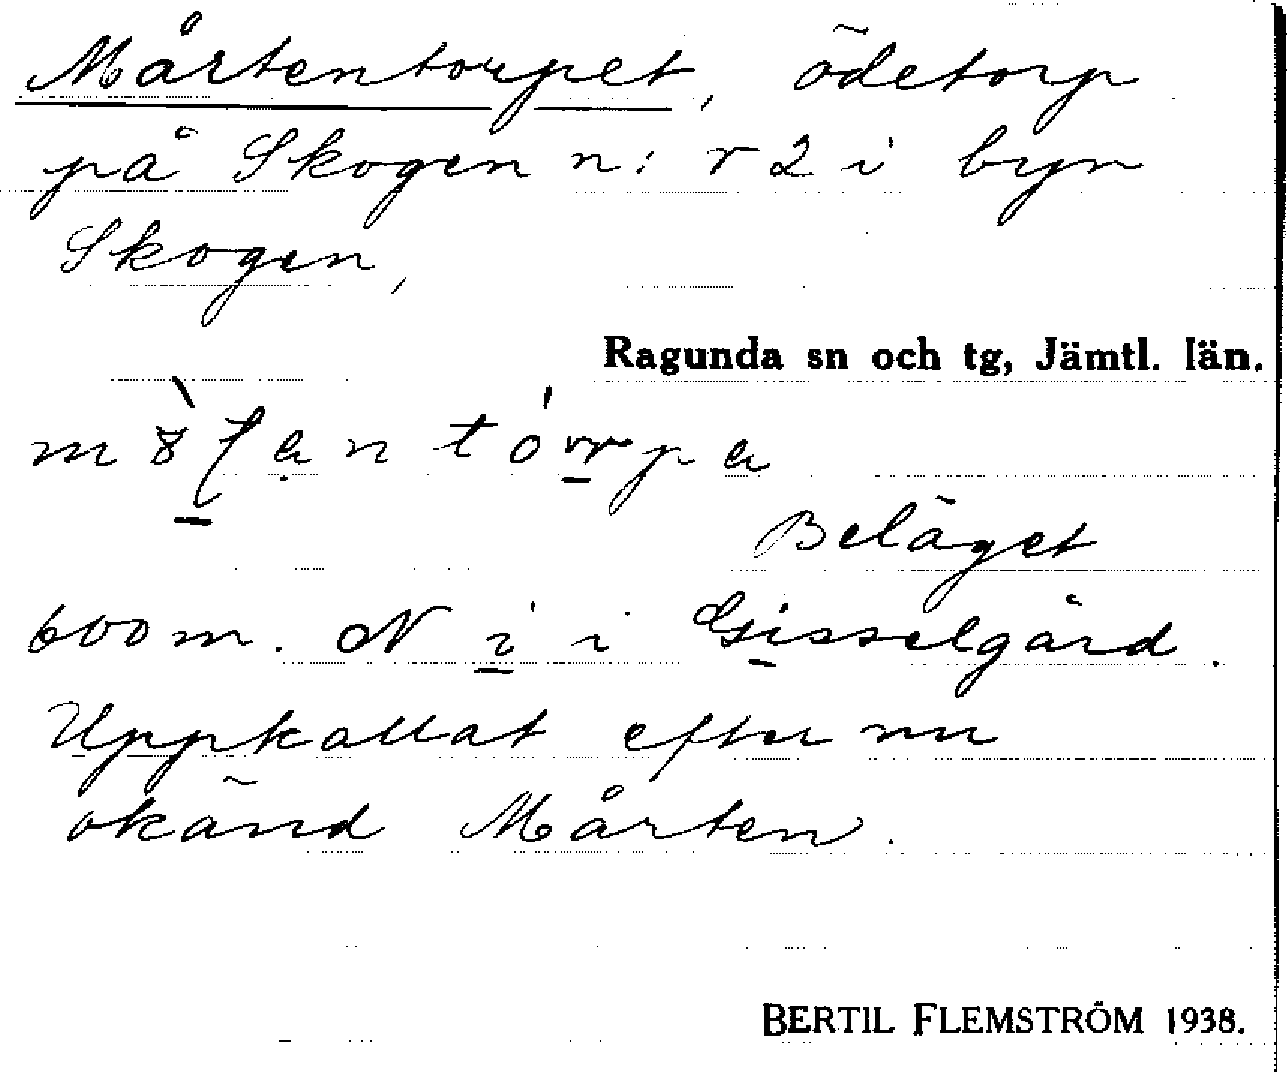 Mårtentorpet, ödetorp
på Skogen n:r 2 i byn
Skogen,
Ragunda sn och tg, Jämtl. län.
Beläget
600 m. N i i Gisselgård.
Uppkallat efter nu
okänd Mårten.
BERTIL FLEMSTRÖM 1938.